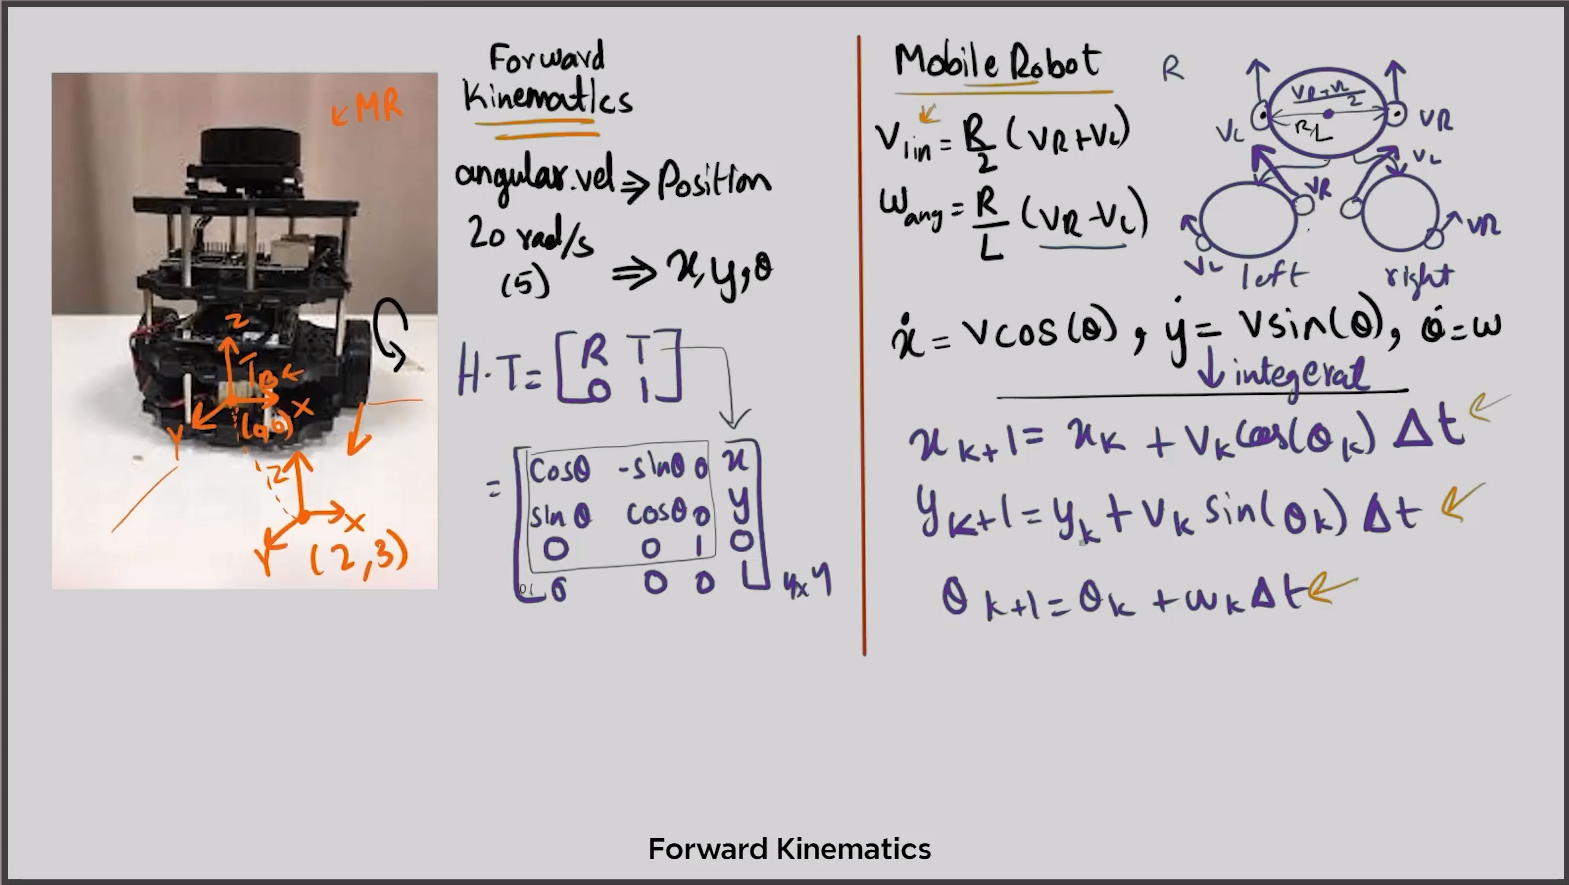 MR
Z
TB
X
(0,0)
Y
Z
X
Y
(2,3)
Forward
Kinematics
angular.vel ⇒ Position
20 rad/s
(5) ⇒ x,y,θ
H.T = [R T
0 1]
= [cosθ -sinθ 0 x
sinθ cosθ 0 y
0 0 1 0
0 0 0 1] 4x4
Mobile Robot
Vlin = R/2 (VR+VL)
ωang = R/L (VR-VL)
R
VR+VL/2
VL
L
VR
VL
VR
VR
VL
left
right
ẋ = Vcos(θ), ẏ = Vsin(θ), θ̇ = ω
↓ integeral
xk+1 = xk + Vk Cos(θk) Δt
yk+1 = yk + Vk sin(θk) Δt
θk+1 = θk + ωk Δt
Forward Kinematics